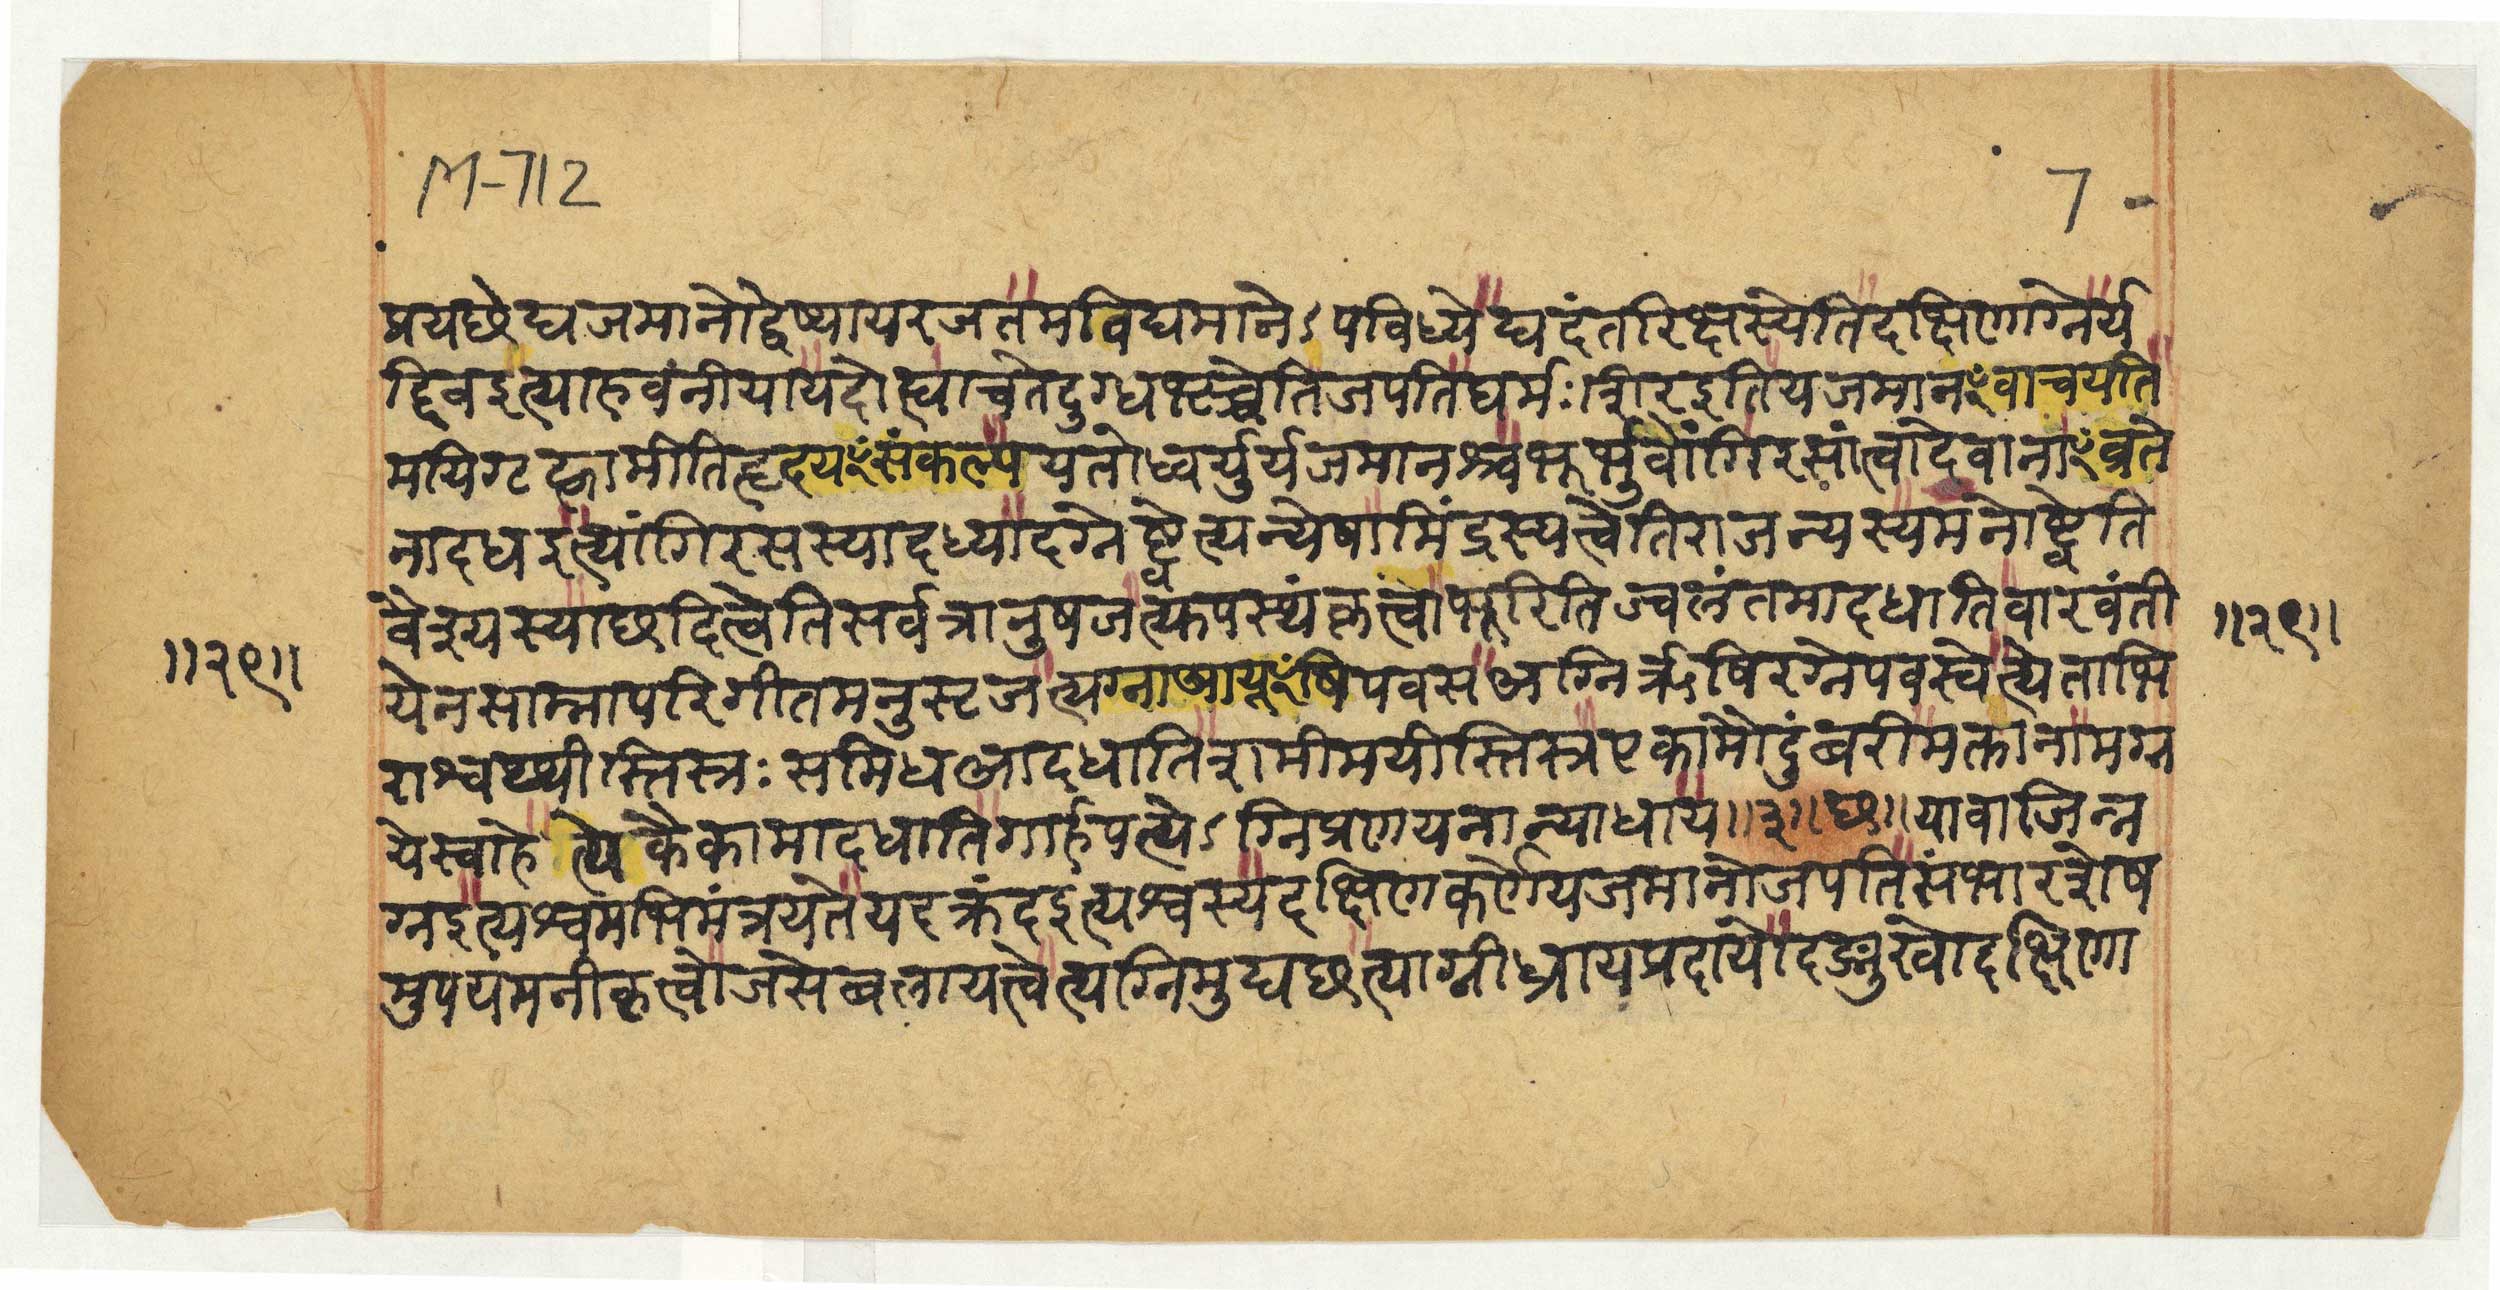 M-712
7
प्रयछेद्यजमानोद्वेष्यायरजतमविद्यमानेऽपविध्येद्यदंतरिक्षस्येतिदक्षिणाग्नेर्य
द्दिवइत्याहवनीयायदोह्याचतेदुग्धभृत्त्वेतिजपतिघर्मःशिरइतियजमानꣳवाचयति
मयिगृह्णामीतिहृदयꣳसंकल्पयतोध्वर्युर्यजमानश्चभूर्भुवोंगिरसांत्वादेवानाꣳव्रते
नादधइत्यांगिरसस्यादध्यादग्नेष्ट्वेत्यन्येषामिंद्रस्यत्वेतिराजन्यस्यमनोष्ट्वेति
वैश्यस्याछदित्वेतिसर्वत्रानुषजत्युपस्थंकृत्वोभूरितिज्वलंतमादधातिवारवंती
येनसाम्नापरिगीतमनुसृजत्यग्नाआयूꣳषिपवसअग्निर्ऋषिरग्नेपवस्वेत्येताभि
राश्वथ्थीस्तिस्रःसमिधआदधातिशमीमयीस्तिस्रएकामौदुंबरीमक्तानामग्न
येस्वाहेत्येकैकामादधातिगार्हपत्येऽग्निप्रणयनान्याधाय॥३॥छ॥यावाजिन्न
ग्नइत्यश्वमभिमंत्रयतेयदक्रंदइत्यश्वस्यदक्षिणेकर्णेयजमानोजपतिसंभारशेष
मुपयमनीकृत्वोजसेबलायत्वेत्यग्निमुद्यछत्याग्नीध्रायप्रदायोदङ्मुखोदक्षिणा
॥२९॥
॥२९॥